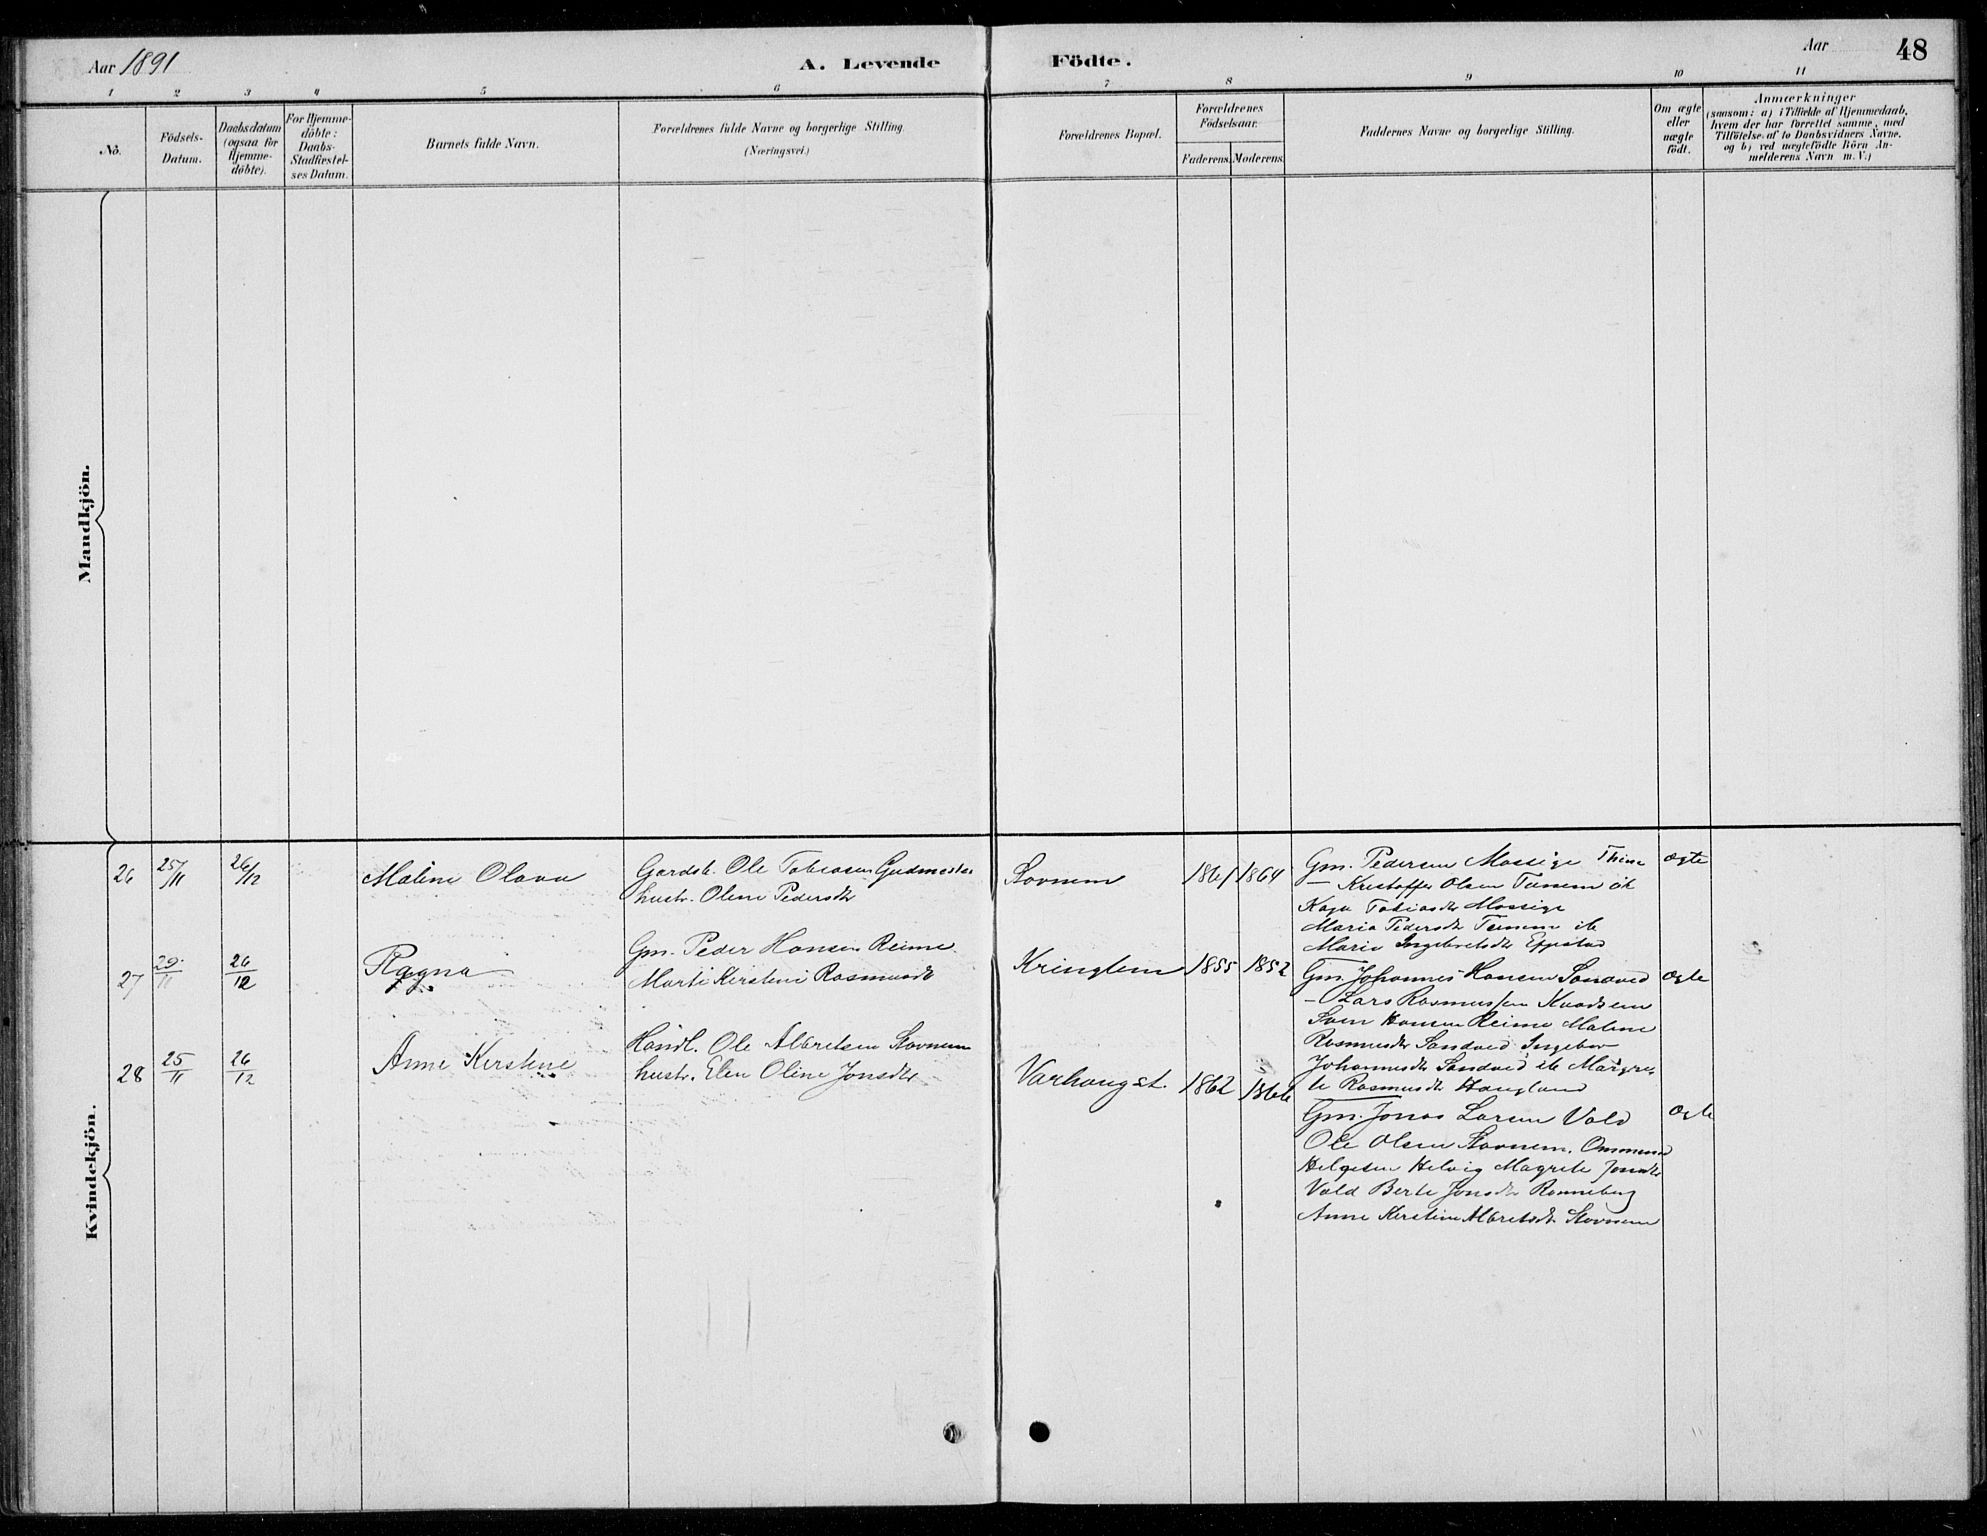 Aar 1891
A. Levende
Födte.
Aar
48
1 2 3 4 5 6 7 8 9 10 11
No.
Födsels-
Datum.
Daabsdatum
(ogsaa for
Hjemme-
döbte).
For Hjemme-
döbte:
Daabs-
Stadfæstel-
ses Datum.
Barnets fulde Navn.
Forældrenes fulde Navne og borgerlige Stilling.
(Næringsvei.)
Forældrenes Bopæl.
Forældrenes
Födselsaar.
Faderens. Moderens.
Faddernes Navne og borgerlige Stilling.
Om ægte
eller
uægte
födt.
Anmærkninger
(saasom: a) i Tilfælde af Hjemmedaab,
hvem der har forrettet samme, med
Tilföielse af to Daabsvidners Navne.
og b) ved uægtefödte Börn An-
melderens Navn m. V.)
Mandkjön.
Kvindekjön.
26 25/11 26/12
Maline Olava
Gardbr. Ole Tobiasen Gudmestad
hustr. Olene Pedersdtr
Stovnem
1861 1864
Gm. Pedersen Mossige Thime
— Kristoffer Olsen Tunem
Kaja Tobiasdtr Mossige
Maria Pedersdtr Tunem ib
Marie Ingebretsdtr Eppstad
ægte
27 29/11 26/12
Ragna
Gm. Peder Hansen Reime
Marti Kerstine Rasmusdtr
Kringlem
1855 1852
Gm. Johannes Hansen Sandved
— Lars Rasmussen Kvadsem
Sven Hansen Reime Malene
Rasmusdtr Sandved Ingebor
Johannesdtr Sandved ib Margre
te Rasmusdtr Haugland
ægte
28 25/11 26/12
Anne Kerstine
Handl. Ole Albretsen Stovnem
hustr. Elen Oline Jonsdtr
Varhaugst.
1862 1866
Gm. Jonas Larsen Vold
Ole Olsen Stovnem. Ommund
Helgesen Helvig Magrete Jonsdtr
Vold Berte Jonsdtr Ranneberg
Anne Kerstine Albretsdtr Stovnem
ægte